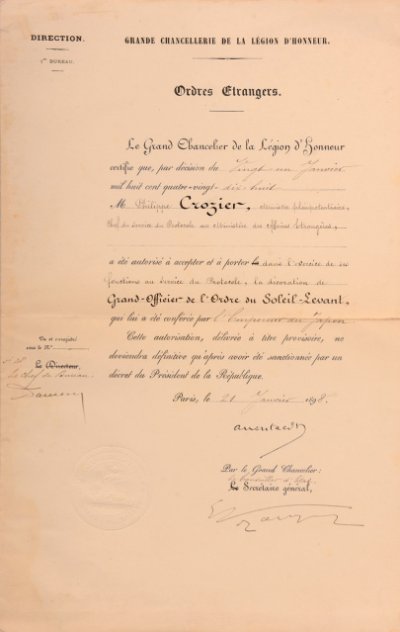 DIRECTION.
1er BUREAU.
GRANDE CHANCELLERIE DE LA LÉGION D'HONNEUR.
Ordres Etrangers.
Le Grand Chancelier de la Légion d'Honneur
certifie que, par décision du Vingt un Janvier
mil huit cent quatre-vingt-dix-huit
M. Philippe Crozier, ministre plénipotentiaire,
Chef du Service du Protocole au ministère des Affaires Etrangères,
a été autorisé à accepter et à porter la dans l'exercice de ses
fonctions au service du Protocole, la décoration de
Grand-Officier de l'Ordre du Soleil-Levant,
qui lui a été conférée par l'Empereur du Japon
Cette autorisation, délivrée à titre provisoire, ne
deviendra définitive qu'après avoir été sanctionnée par un
décret du Président de la République.
Vu et enregistré
sous le N°
Le Directeur,
le chef de bureau
Paris, le 21 Janvier 1898
Par le Grand Chancelier:
Le Secrétaire général,